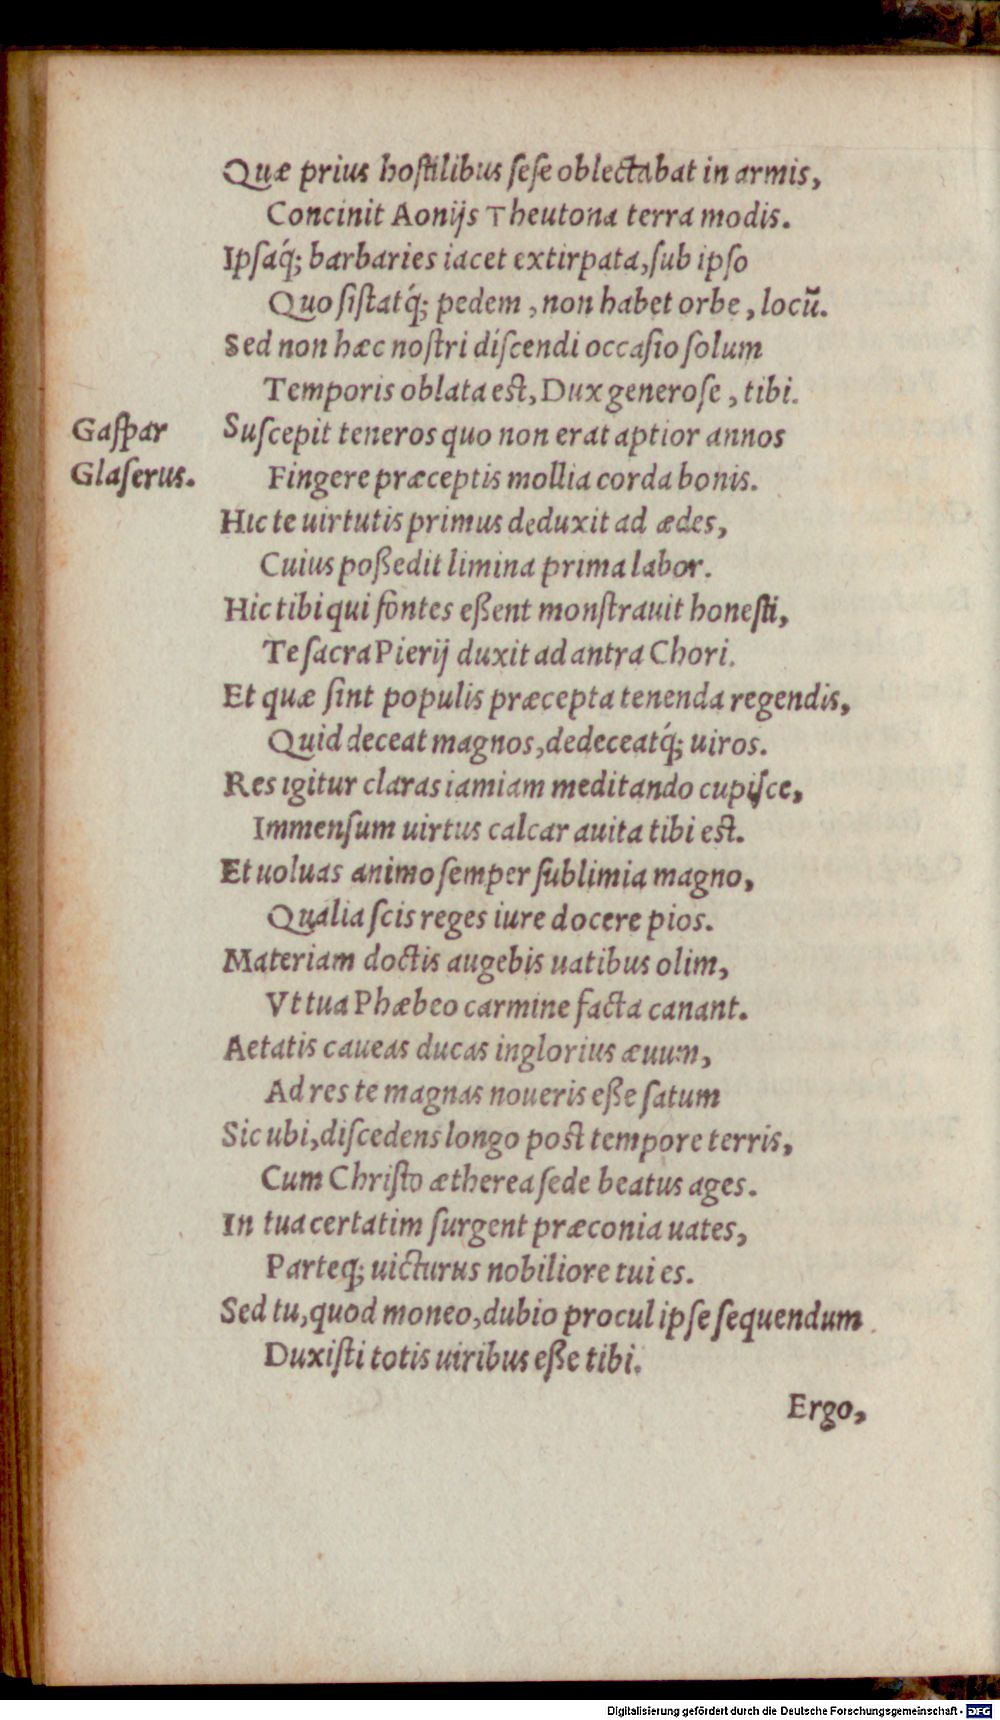 Quæ prius hoſtilibus ſeſe oblectabat in armis,
Concinit Aonijs Theutona terra modis.
Ipſaq́; barbaries iacet extirpata, ſub ipſo
Quo ſiſtatq́; pedem, non habet orbe, locũ.
Sed non hæc noſtri diſcendi occaſio ſolum
Temporis oblata eſt, Dux generoſe, tibi.
Gaſpar
Glaſerus.
Suſcepit teneros quo non erat aptior annos
Fingere præceptis mollia corda bonis.
Hic te uirtutis primus deduxit ad ædes,
Cuius poßedit limina prima labor.
Hic tibi qui fontes eßent monſtrauit honeſti,
Te ſacra Pierij duxit ad antra Chori.
Et quæ ſint populis præcepta tenenda regendis,
Quid deceat magnos, dedeceatq́; uiros.
Res igitur claras iamiam meditando cupiſce,
Immenſum uirtus calcar auita tibi eſt.
Et uoluas animo ſemper ſublimia magno,
Qualia ſcis reges iure docere pios.
Materiam doctis augebis uatibus olim,
Vt tua Phæbeo carmine facta canant.
Aetatis caueas ducas inglorius æuum,
Ad res te magnas noueris eße ſatum
Sic ubi, diſcedens longo poſt tempore terris,
Cum Chriſto ætherea ſede beatus ages.
In tua certatim ſurgent præconia uates,
Parteq; uicturus nobiliore tui es.
Sed tu, quod moneo, dubio procul ipſe ſequendum
Duxiſti totis uiribus eße tibi.
Ergo,
Digitalisierung gefördert durch die Deutsche Forschungsgemeinschaft - DFG